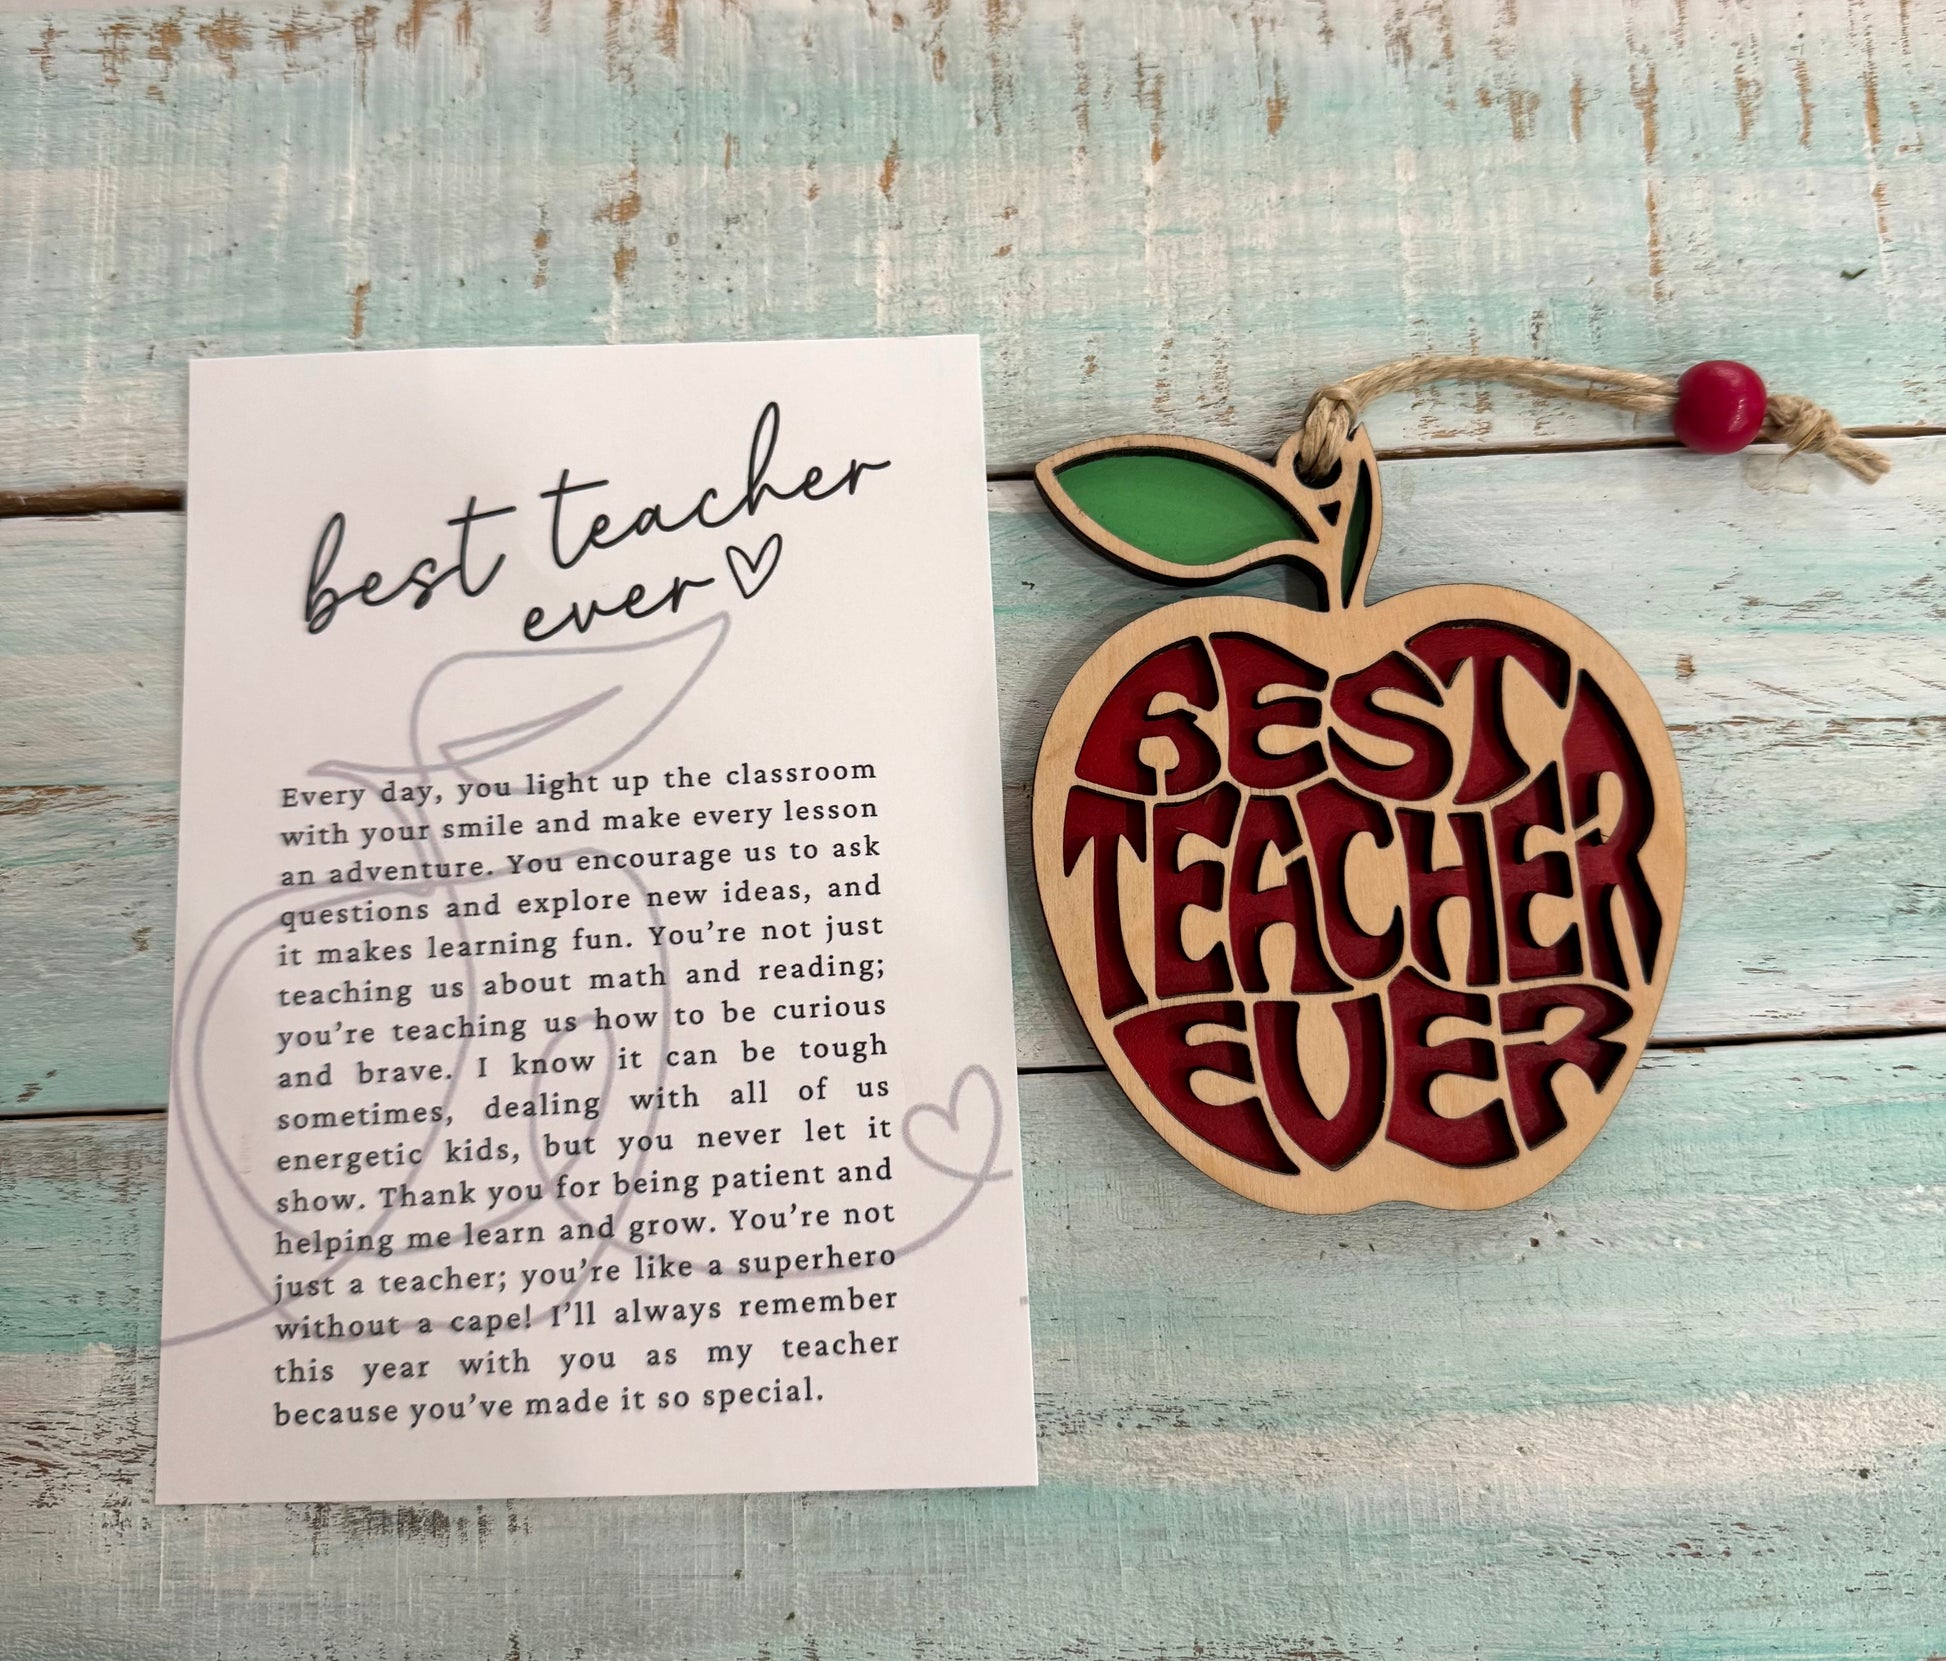 best teacher
ever
Every day, you light up the classroom
with your smile and make every lesson
an adventure. You encourage us to ask
questions and explore new ideas, and
it makes learning fun. You're not just
teaching us about math and reading;
you're teaching us how to be curious
and brave. I know it can be tough
sometimes, dealing with all of us
energetic kids, but you never let it
show. Thank you for being patient and
helping me learn and grow. You're not
just a teacher; you're like a superhero
without a cape! I'll always remember
this year with you as my teacher
because you've made it so special.
BEST
TEACHER
EVER